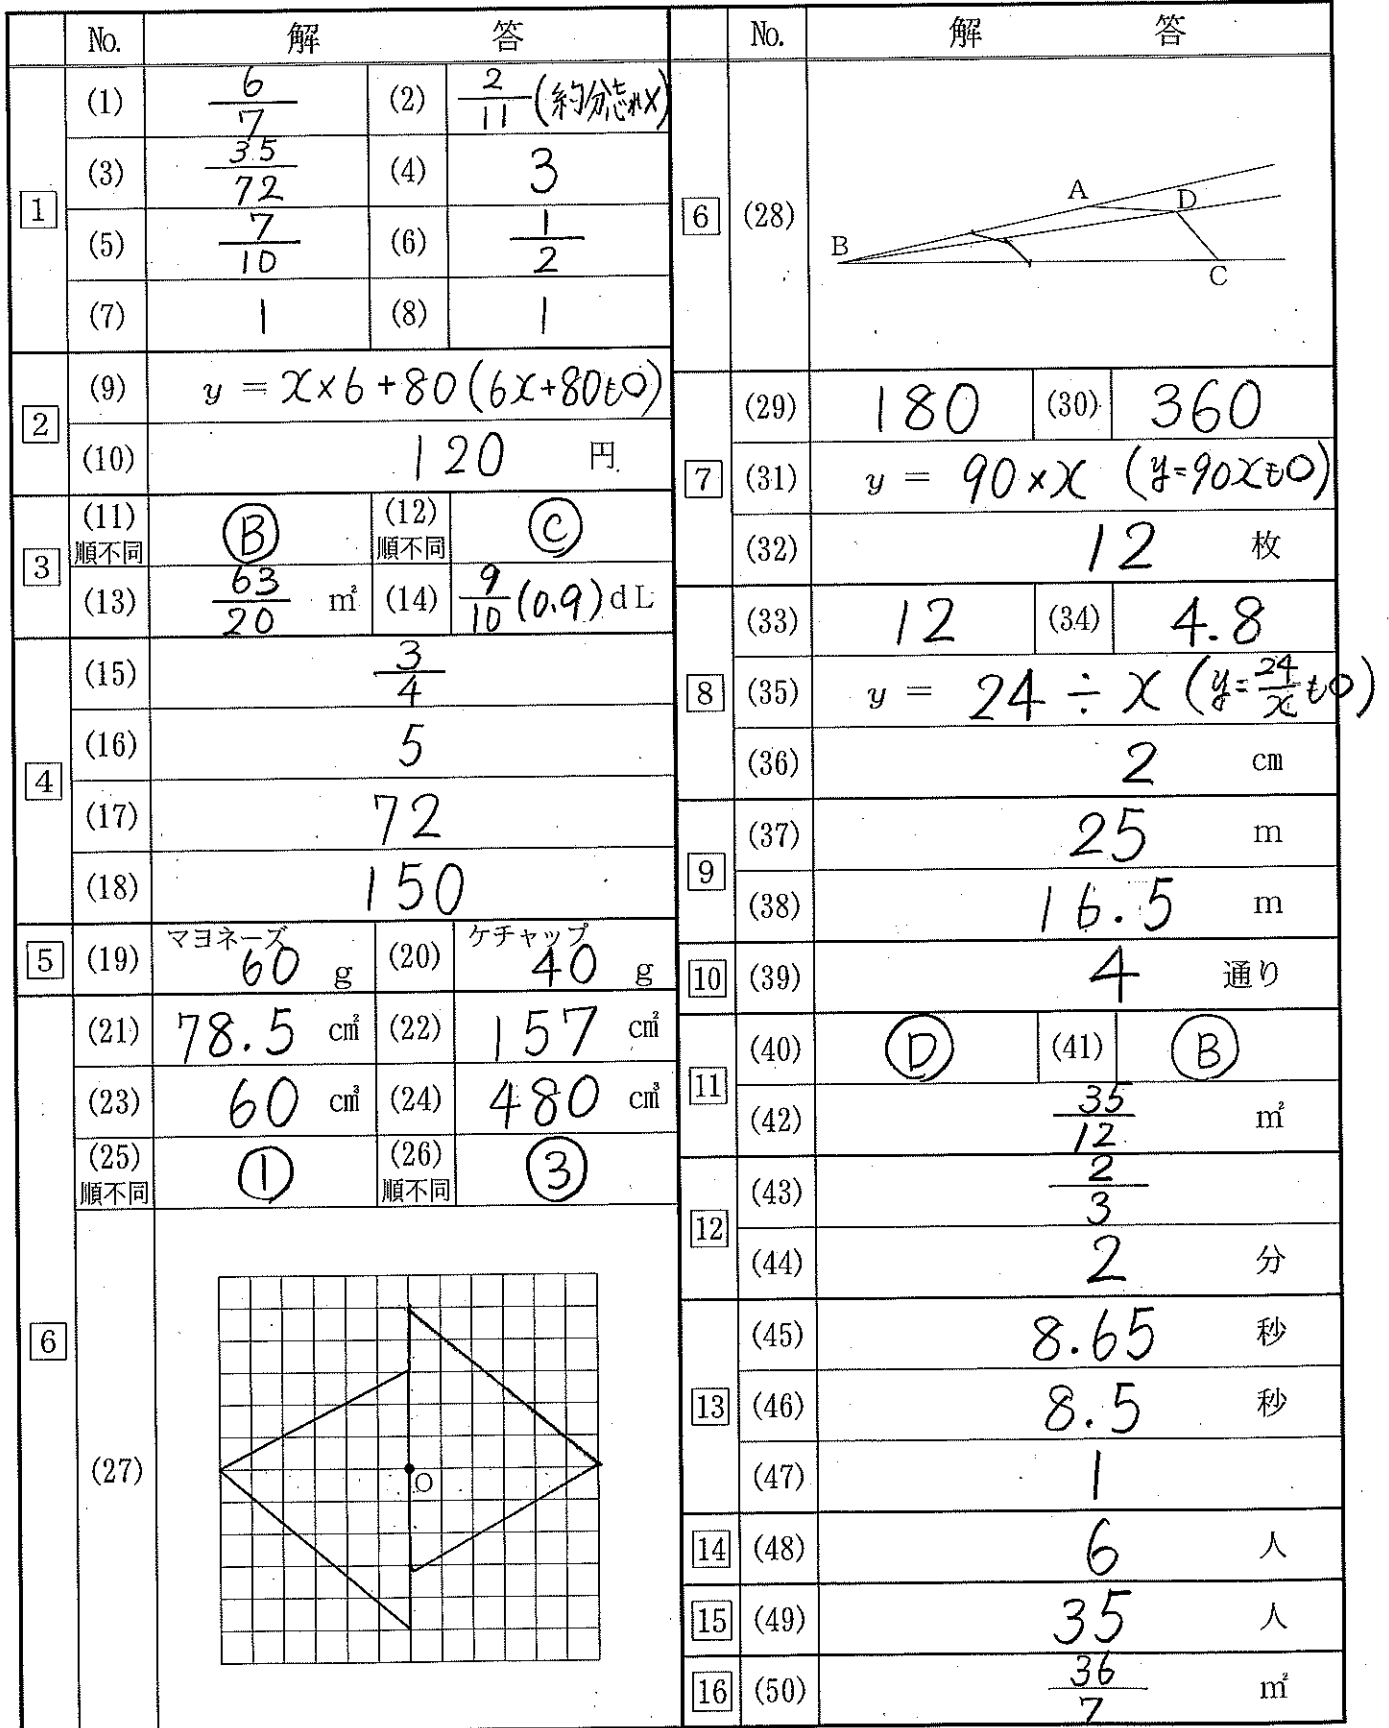 No. 解 答
1
(1) 6/7 (2) 2/11 (約分忘れ×)
(3) 35/72 (4) 3
(5) 7/10 (6) 1/2
(7) 1 (8) 1
2
(9) y = x×6+80 (6x+80も○)
(10) 120 円
3
(11) 順不同 Ⓑ (12) 順不同 Ⓒ
(13) 63/20 ㎡ (14) 9/10 (0.9) dL
4
(15) 3/4
(16) 5
(17) 72
(18) 150
5
(19) マヨネーズ 60 g (20) ケチャップ 40 g
6
(21) 78.5 ㎠ (22) 157 ㎠
(23) 60 ㎤ (24) 480 ㎤
(25) 順不同 ① (26) 順不同 ③
(27)
O
No. 解 答
6
(28)
A
D
B
C
7
(29) 180 (30) 360
(31) y = 90×x (y=90xも○)
(32) 12 枚
8
(33) 12 (34) 4.8
(35) y = 24÷x (y=24/xも○)
(36) 2 cm
9
(37) 25 m
(38) 16.5 m
10
(39) 4 通り
11
(40) Ⓓ (41) Ⓑ
(42) 35/12 ㎡
12
(43) 2/3
(44) 2 分
13
(45) 8.65 秒
(46) 8.5 秒
(47) 1
14
(48) 6 人
15
(49) 35 人
16
(50) 36/7 ㎡